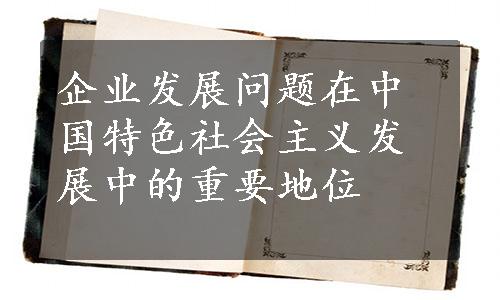 企业发展问题在中
国特色社会主义发
展中的重要地位